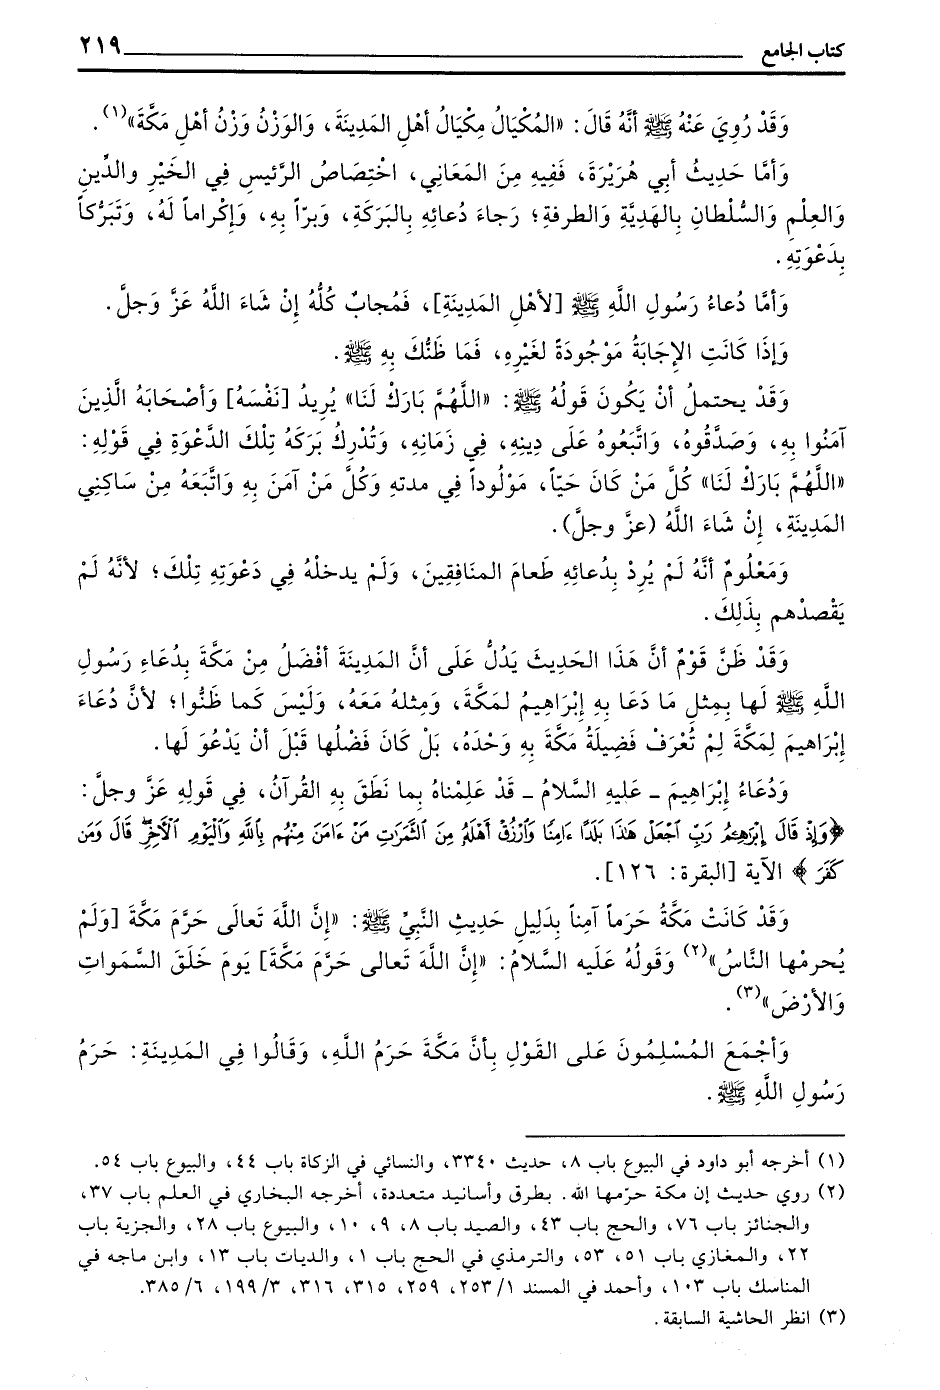 كتاب الجامع ٢١٩
وَقَدْ رُوِيَ عَنْهُ ﷺ أنَّهُ قَالَ: «المُكْيَالُ مِكْيَالُ أهْلِ المَدِينَةَ، وَالوَزْنُ وَزْنُ أهْلِ مَكَّةَ»(١).
وَأمَّا حَدِيثُ أبِي هُرَيْرَةَ، فَفِيهِ مِنَ المَعَانِي، اخْتِصَاصُ الرَّئيسِ فِي الخَيْرِ والدِّينِ
وَالعِلْمِ وَالسُّلْطانِ بِالهَدِيَّةِ وَالطرفةِ؛ رَجاءَ دُعائِهِ بِالبَرَكَةِ، وَبرّاً بِهِ، وَإكْراماً لَهُ، وَتَبَرُّكاً
بِدَعْوَتِهِ.
وَأمَّا دُعاءُ رَسُولِ اللَّهِ ﷺ [لأهْلِ المَدِينَةِ]، فَمُجابٌ كُلُّهُ إنْ شَاءَ اللَّهُ عَزَّ وَجلَّ.
وَإذَا كَانَتِ الإجَابَةُ مَوْجُودَةً لغَيْرِهِ، فَمَا ظَنُّكَ بِهِ ﷺ.
وَقَدْ يحتملُ أنْ يَكُونَ قَولُهُ ﷺ: «اللَّهُمَّ بَارَكْ لَنَا» يُرِيدُ [نَفْسَهُ] وَأصْحَابَهُ الَّذِينَ
آمَنُوا بِهِ، وَصَدَّقُوهُ، وَاتَّبَعُوهُ عَلَى دِينِهِ، فِي زَمَانِهِ، وَتُدْرِكُ بَرَكَهُ تِلْكَ الدَّعْوَةِ فِي قَوْلِهِ:
«اللَّهُمَّ بَارَكْ لَنَا» كُلَّ مَنْ كَانَ حَيّاً، مَوْلُوداً فِي مدتهِ وَكُلَّ مَنْ آمَنَ بِهِ وَاتَّبَعَهُ مِنْ سَاكِنِي
المَدِينَةِ، إنْ شَاءَ اللَّهُ (عزَّ وجلَّ).
وَمَعْلُومٌ أنَّهُ لَمْ يُرِدْ بِدُعائِهِ طَعامَ المنَافِقِينَ، وَلَمْ يدخلْهُ فِي دَعْوَتِهِ تِلْكَ؛ لأنَّهُ لَمْ
يَقْصدْهم بِذَلِكَ.
وَقَدْ ظَنَّ قَوْمٌ أنَّ هَذَا الحَدِيثَ يَدُلُّ عَلَى أنَّ المَدِينَةَ أفْضَلُ مِنْ مَكَّةَ بِدُعَاءِ رَسُولِ
اللَّهِ ﷺ لَها بِمِثلِ مَا دَعَا بِهِ إبْرَاهِيمُ لمَكَّةَ، وَمِثلهُ مَعَهُ، وَلَيْسَ كَما ظَنُّوا؛ لأنَّ دُعَاءَ
إبْرَاهِيمَ لِمَكَّةَ لِمْ تُعْرَفْ فَضِيلَةُ مَكَّةَ بِهِ وَحْدَهُ، بَلْ كَانَ فَضْلُها قَبْلَ أنْ يَدْعُوَ لَها.
وَدُعَاءُ إبْرَاهِيمَ - عَليهِ السَّلامُ - قَدْ عَلِمْناهُ بِما نَطَقَ بِهِ القُرآنُ، فِي قَولِهِ عَزَّ وجلَّ:
﴿وَإِذْ قَالَ إِبْرَاهِيمُ رَبِّ اجْعَلْ هَٰذَا بَلَدًا ءَامِنًا وَارْزُقْ أَهْلَهُ مِنَ الثَّمَرَاتِ مَنْ ءَامَنَ مِنْهُم بِاللَّهِ وَالْيَوْمِ الْآخِرِ قَالَ وَمَن
كَفَرَ﴾ الآية [البقرة: ١٢٦].
وَقَدْ كَانَتْ مَكَّةُ حَرَماً آمِناً بِدَلِيلِ حَدِيثِ النَّبِيِّ ﷺ: «إنَّ اللَّهَ تَعالَى حَرَّمَ مَكَّةَ [وَلَمْ
يُحرمْها النَّاسُ»(٢) وَقَولُهُ عَلَيه السَّلامُ: «إنَّ اللَّهَ تَعالى حَرَّمَ مَكَّةَ] يَومَ خَلَقَ السَّمَواتِ
وَالأرْضَ»(٣).
وَأجْمَعَ المُسْلِمُونَ عَلى القَوْلِ بِأنَّ مَكَّةَ حَرَمُ اللَّهِ، وَقَالُوا فِي المَدِينَةِ: حَرَمُ
رَسُولِ اللَّهِ ﷺ.
(١) أخرجه أبو داود في البيوع باب ٨، حديث ٣٣٤٠، والنسائي في الزكاة باب ٤٤، والبيوع باب ٥٤.
(٢) روي حديث إن مكة حرّمها الله. بطرق وأسانيد متعددة، أخرجه البخاري في العلم باب ٣٧،
والجنائز باب ٧٦، والحج باب ٤٣، والصيد باب ٨، ٩، ١٠، والبيوع باب ٢٨، والجزية باب
٢٢، والمغازي باب ٥١، ٥٣، والترمذي في الحج باب ١، والديات باب ١٣، وابن ماجه في
المناسك باب ١٠٣، وأحمد في المسند ١/ ٢٥٣، ٢٥٩، ٣١٥، ٣١٦، ٣/ ١٩٩، ٦/ ٣٨٥.
(٣) انظر الحاشية السابقة.